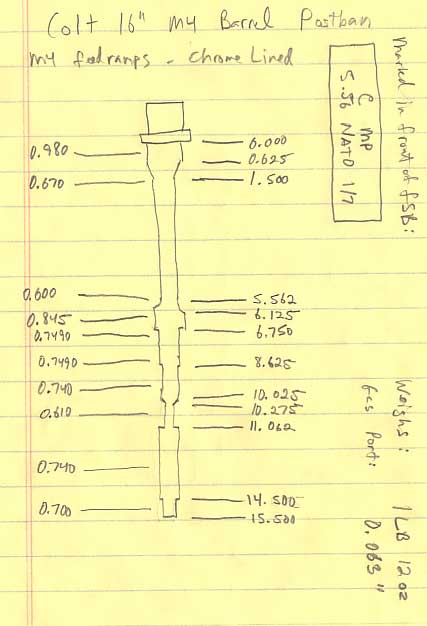 Colt 16" M4 Barrel Postban
M4 feedramps - Chrome Lined
Marked in front of FSB:
C MP
5.56 NATO 1/7
0.980
0.670
0.600
0.845
0.7490
0.7490
0.740
0.610
0.740
0.700
0.000
0.625
1.500
5.562
6.125
6.750
8.625
10.025
10.275
11.062
14.500
15.500
Weighs: 1 LB 12 oz
Gas Port: 0.063"